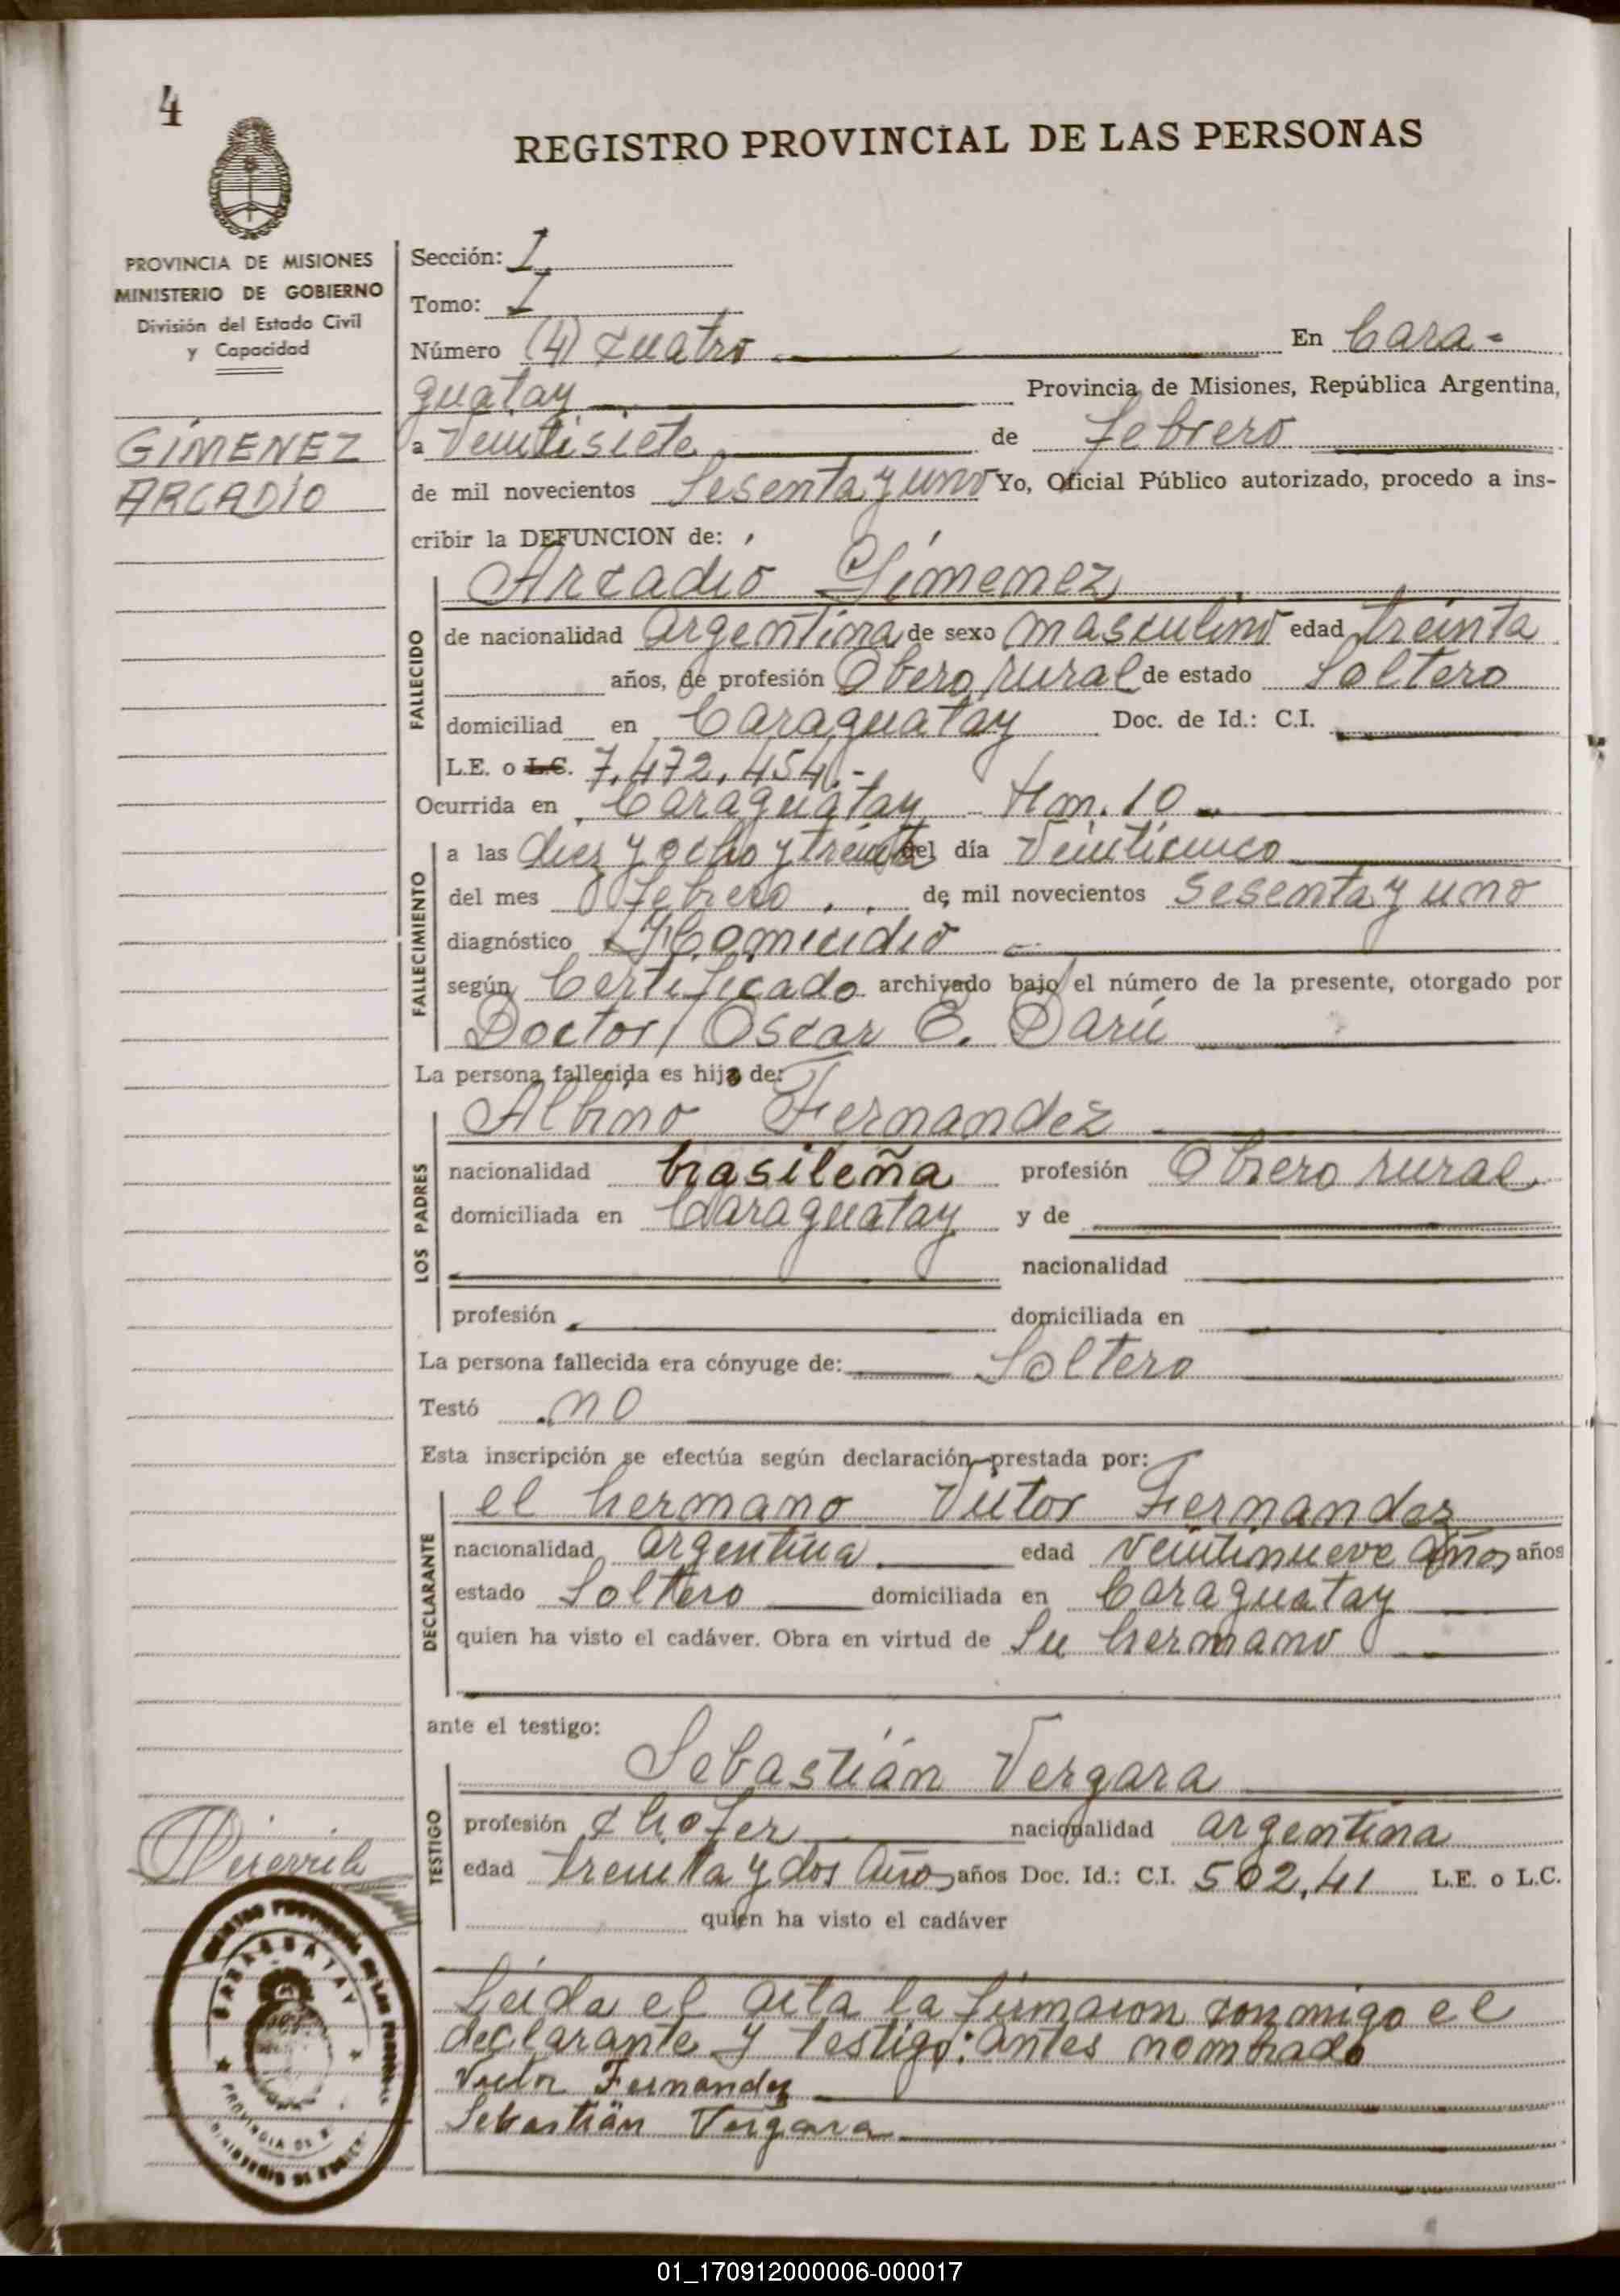 4
REGISTRO PROVINCIAL DE LAS PERSONAS
PROVINCIA DE MISIONES
MINISTERIO DE GOBIERNO
División del Estado Civil
y Capacidad
GIMENEZ
ARCADIO
Sección: I
Tomo: I
Número (4) cuatro En Cara-
guatay Provincia de Misiones, República Argentina,
a Veintisiete de febrero
de mil novecientos Sesenta y uno Yo, Oficial Público autorizado, procedo a ins-
cribir la DEFUNCION de:
Arcadio Gimenez
FALLECIDO
de nacionalidad argentina de sexo masculino edad treinta
años, de profesión Obero rural de estado Soltero
domiciliad en Caraguatay Doc. de Id.: C.I.
L.E. o L.C. 7.472.454.-
Ocurrida en Caraguatay Km. 10
FALLECIMIENTO
a las diez y ocho y treinta del día Veinticinco
del mes febrero de mil novecientos sesenta y uno
diagnóstico Homicidio
según Certificado archivado bajo el número de la presente, otorgado por
Doctor Oscar E. Darú
La persona fallecida es hijo de:
LOS PADRES
Albino Fernandez
nacionalidad brasileña profesión Obrero rural
domiciliada en Caraguatay y de
nacionalidad
profesión domiciliada en
La persona fallecida era cónyuge de: Soltero
Testó no
Esta inscripción se efectúa según declaración prestada por:
DECLARANTE
el hermano Victor Fernandez
nacionalidad argentina edad veintinueve años años
estado Soltero domiciliada en Caraguatay
quien ha visto el cadáver. Obra en virtud de Su hermano
ante el testigo:
TESTIGO
Sebastián Vergara
profesión chofer nacionalidad argentina
edad treinta y dos años años Doc. Id.: C.I. 502.41 L.E. o L.C.
quien ha visto el cadáver
Leida el acta la firmaron conmigo el
declarante y testigo: antes nombrado
Victor Fernandez
Sebastián Vergara
CARAGUATAY
01_170912000006-000017